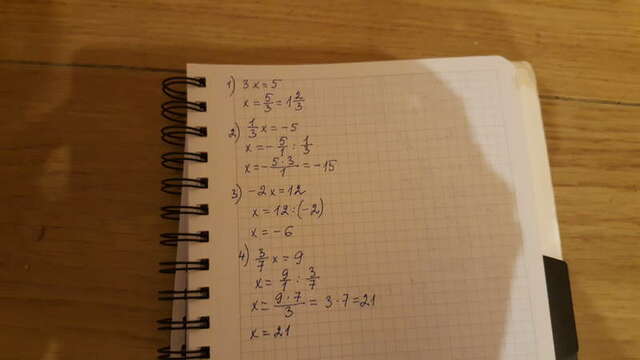 1) 3x=5
x= 5/3 = 1 2/3
2) 1/3 x = -5
x = - 5/1 : 1/3
x = - 5·3/1 = -15
3) -2x=12
x=12:(-2)
x=-6
4) 3/7 x = 9
x = 9/1 : 3/7
x = 9·7/3 = 3·7=21
x=21